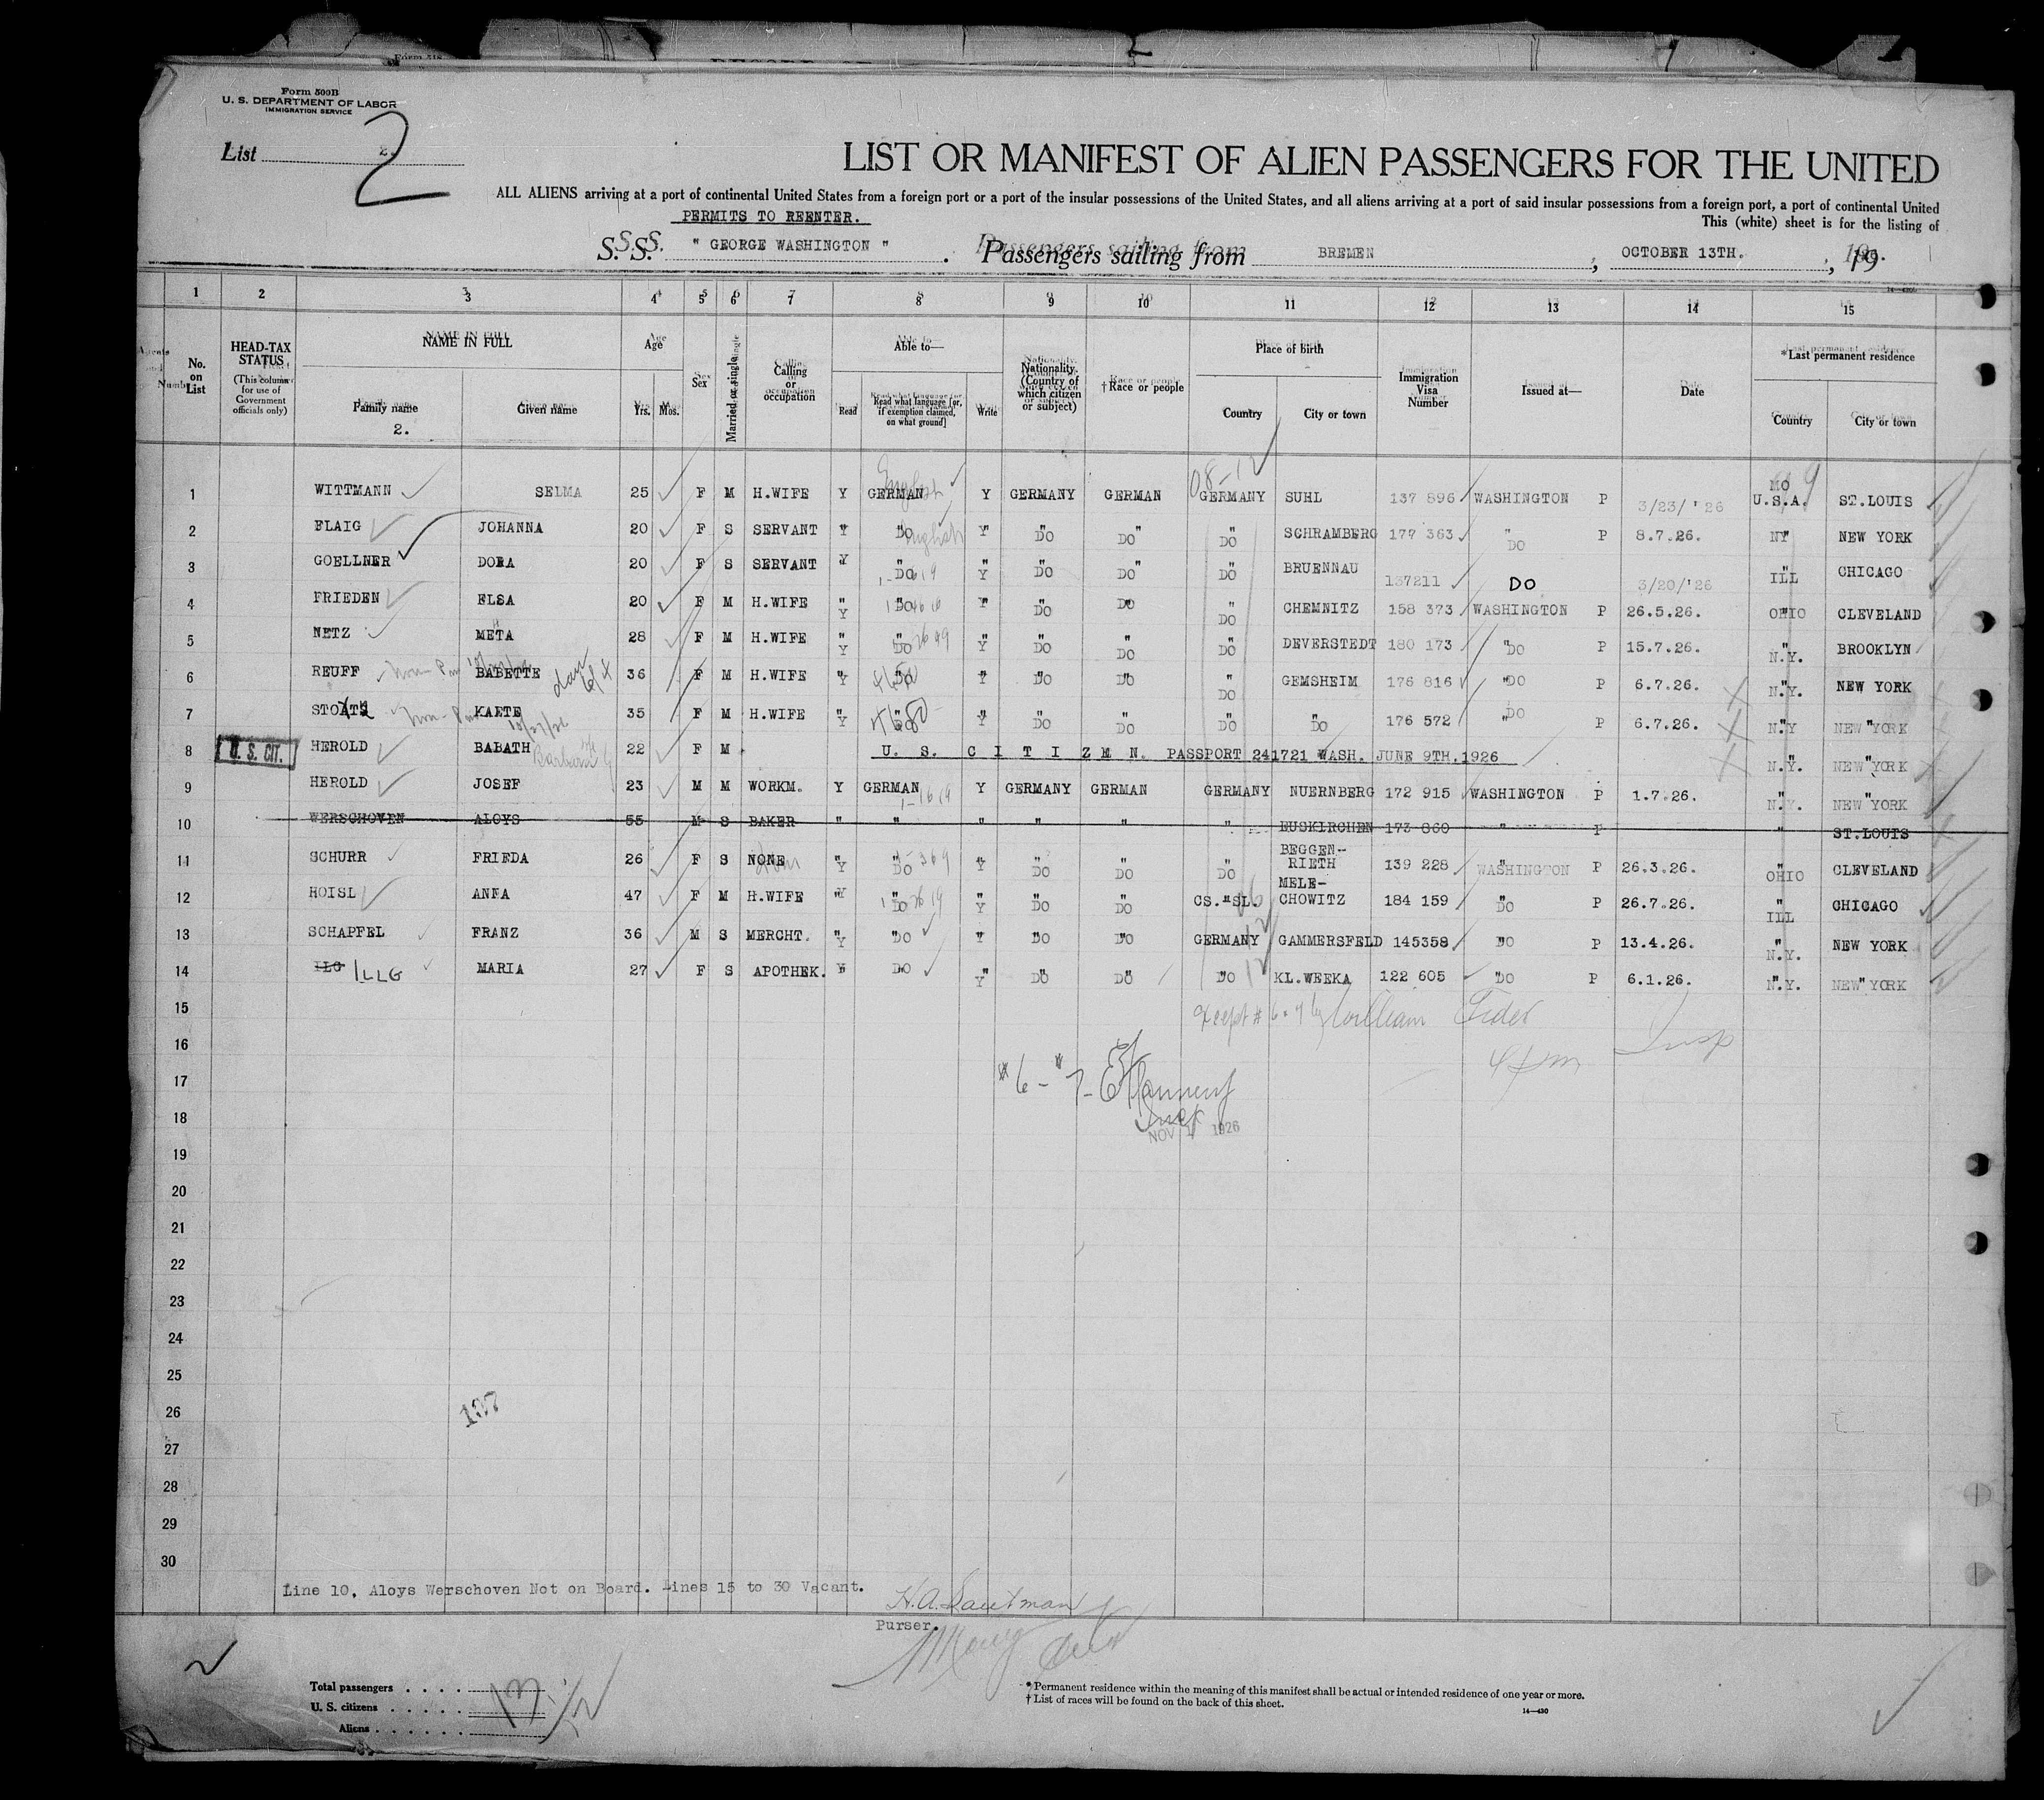 Form 500B
U. S. DEPARTMENT OF LABOR
IMMIGRATION SERVICE
List 2
2
LIST OR MANIFEST OF ALIEN PASSENGERS FOR THE UNITED
ALL ALIENS arriving at a port of continental United States from a foreign port or a port of the insular possessions of the United States, and all aliens arriving at a port of said insular possessions from a foreign port, a port of continental United
PERMITS TO REENTER.
This (white) sheet is for the listing of
S. S. " GEORGE WASHINGTON " . Passengers sailing from BREMEN , OCTOBER 13TH. , 19
1 2 3 4 5 6 7 8 9 10 11 12 13 14 15
No. on List
HEAD-TAX STATUS (This column for use of Government officials only)
NAME IN FULL
Family name
2.
Given name
Age
Yrs. Mos.
Sex
Married or single
Calling or occupation
Able to—
Read
Read what language [or, if exemption claimed, on what ground]
Write
Nationality. (Country of which citizen or subject)
†Race or people
Place of birth
Country
City or town
Immigration Visa Number
Issued at—
Date
*Last permanent residence
Country
City or town
08-12
English MO 9
1 WITTMANN SELMA 25 F M H.WIFE Y GERMAN Y GERMANY GERMAN GERMANY SUHL 137 896 WASHINGTON P 3/23/'26 U.S.A. ST.LOUIS
2 FLAIG JOHANNA 20 F S SERVANT Y " DO English Y " DO DO " " DO SCHRAMBERG 177 363 " DO P 8.7.26. NY NEW YORK
3 GOELLNER DORA 20 F S SERVANT Y " DO " Y " DO DO " " DO BRUENNAU 137211 DO 3/20/'26 " ILL CHICAGO
4 FRIEDEN ELSA 20 F M H.WIFE " Y DO " Y " DO DO " " DO CHEMNITZ 158 373 WASHINGTON P 26.5.26. OHIO CLEVELAND
5 NETZ META 28 F M H.WIFE " Y " DO " Y " DO " DO " DO DEVERSTEDT 180 173 " DO P 15.7.26. " N.Y. BROOKLYN
6 REUFF BABETTE 36 F M H.WIFE " Y " DO " Y " DO " DO " DO GEMSHEIM 176 816 " DO P 6.7.26. " N.Y. NEW YORK
7 KAETE 35 F M H.WIFE " Y " " Y " DO " DO " DO " DO 176 572 " DO P 6.7.26. " N.Y NEW YORK
10/27/26
8 U. S. CIT. HEROLD BABATH Barbara 22 F M U. S. C I T I Z E N. PASSPORT 241721 WASH. JUNE 9TH.1926 " N.Y. NEW YORK
9 HEROLD JOSEF 23 M M WORKM. Y GERMAN Y GERMANY GERMAN GERMANY NUERNBERG 172 915 WASHINGTON P 1.7.26. " N.Y. NEW YORK
10 WERSCHOVEN ALOYS 55 M S BAKER " " " " " " EUSKIRCHEN 173 860 " P " ST.LOUIS
11 SCHURR FRIEDA 26 F S NONE " Y " DO " Y " DO " DO " DO BEGGEN-RIETH 139 228 " WASHINGTON P 26.3.26. " OHIO CLEVELAND
12 HOISL ANNA 47 F M H.WIFE " Y " DO " Y " DO " DO CS."SL. MELE-CHOWITZ 184 159 " DO P 26.7.26. " ILL CHICAGO
13 SCHAPFEL FRANZ 36 M S MERCHT. " Y " DO " Y " DO " DO GERMANY GAMMERSFELD 145358 " DO P 13.4.26. " N.Y. NEW YORK
14 ILG ILLG MARIA 27 F S APOTHEK. " Y " DO " Y " DO " DO " DO KL.WEEKA 122 605 " DO P 6.1.26. " N.Y. NEW YORK
15 William
Insp
16
17 #6 - #7 -
18 Insp
NOV 1926
19
20
21
22
23
24
25
26 137
27
28
29
30
Line 10, Aloys Werschoven Not on Board. Lines 15 to 30 Vacant.
Purser.
Total passengers . . . . 13
U. S. citizens . . . . .
Aliens . . . . . . 12
* Permanent residence within the meaning of this manifest shall be actual or intended residence of one year or more.
† List of races will be found on the back of this sheet.
14—430